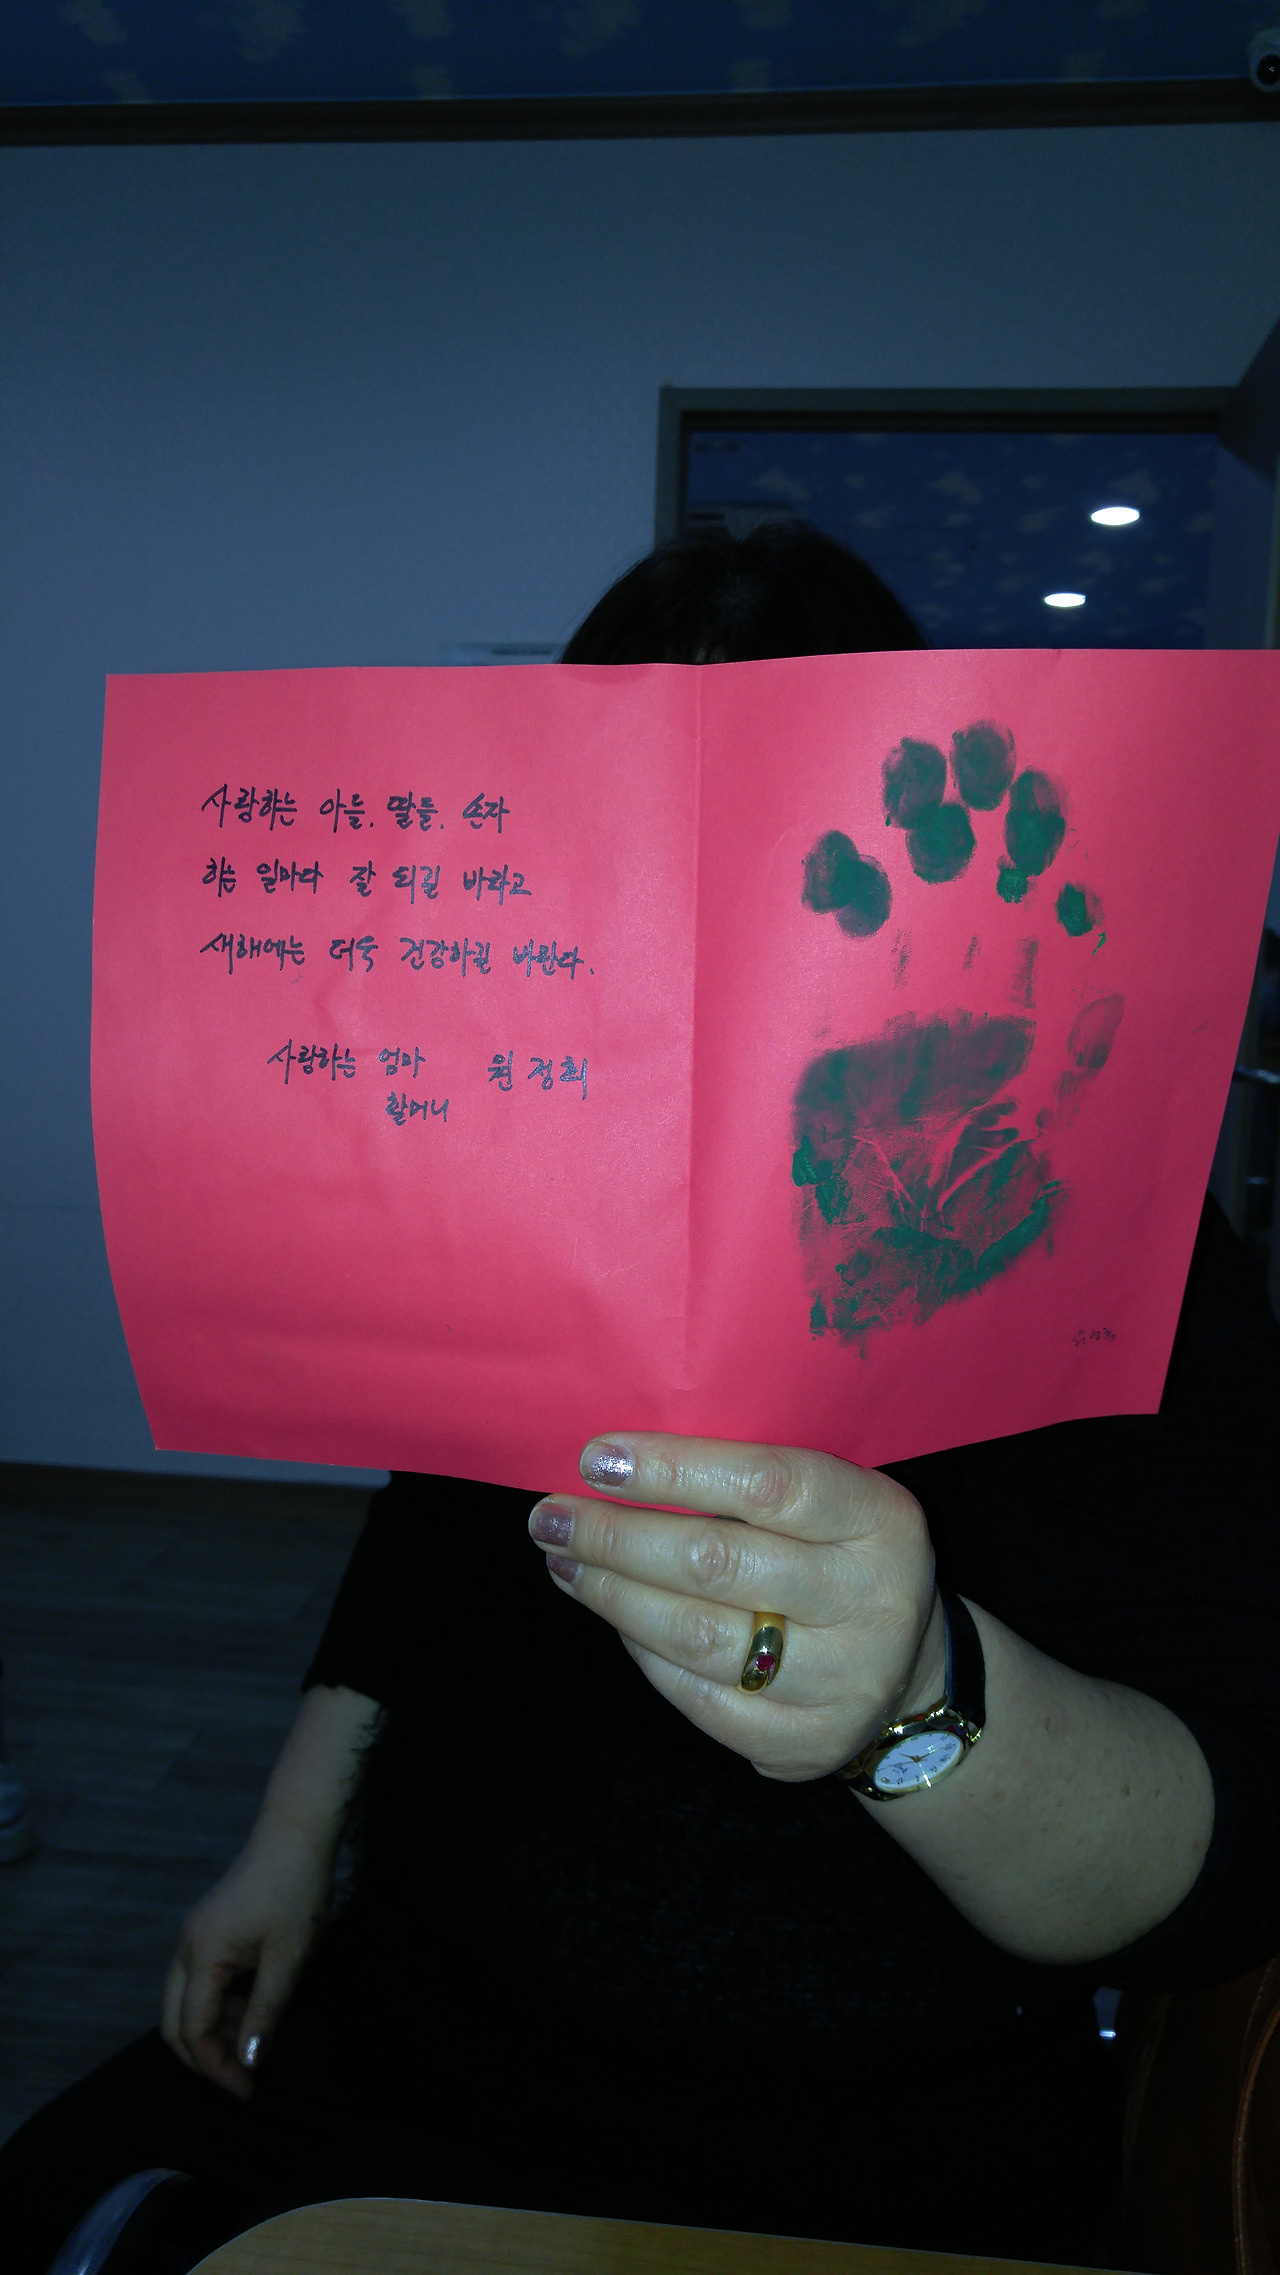 사랑하는 아들. 딸들. 손자
하는 일마다 잘 되길 바라고
새해에는 더욱 건강하길 바란다.
사랑하는 엄마 원정희
할머니